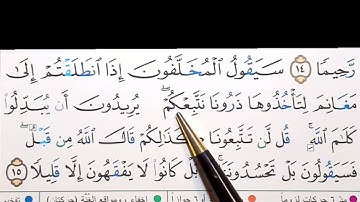 رَّحِيمًا ١٤ سَيَقُولُ ٱلْمُخَلَّفُونَ إِذَا ٱنطَلَقْتُمْ إِلَىٰ
مَغَانِمَ لِتَأْخُذُوهَا ذَرُونَا نَتَّبِعْكُمْ ۖ يُرِيدُونَ أَن يُبَدِّلُوا۟
كَلَٰمَ ٱللَّهِ ۚ قُل لَّن تَتَّبِعُونَا كَذَٰلِكُمْ قَالَ ٱللَّهُ مِن قَبْلُ ۖ
فَسَيَقُولُونَ بَلْ تَحْسُدُونَنَا ۚ بَلْ كَانُوا۟ لَا يَفْقَهُونَ إِلَّا قَلِيلًا ١٥